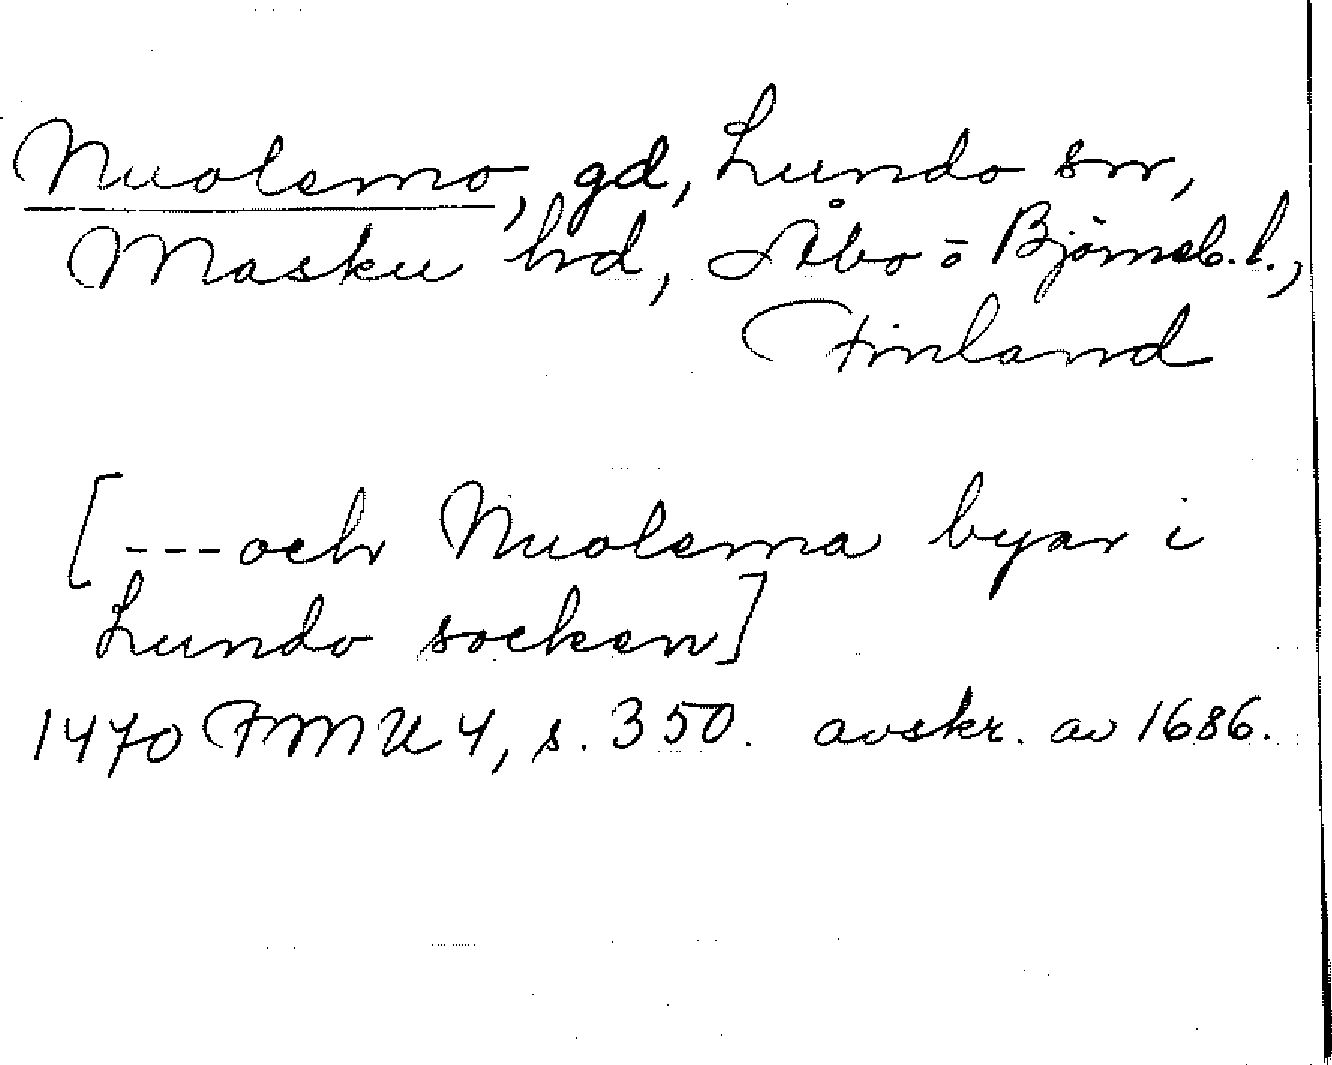 Nuolemo, gd, Lundo sn,
Masku hd, Åbo o Björneb. l.,
Finland
[---och Nuolema byar i
Lundo socken]
1470 FMU 4, s. 350. avskr. av 1686.